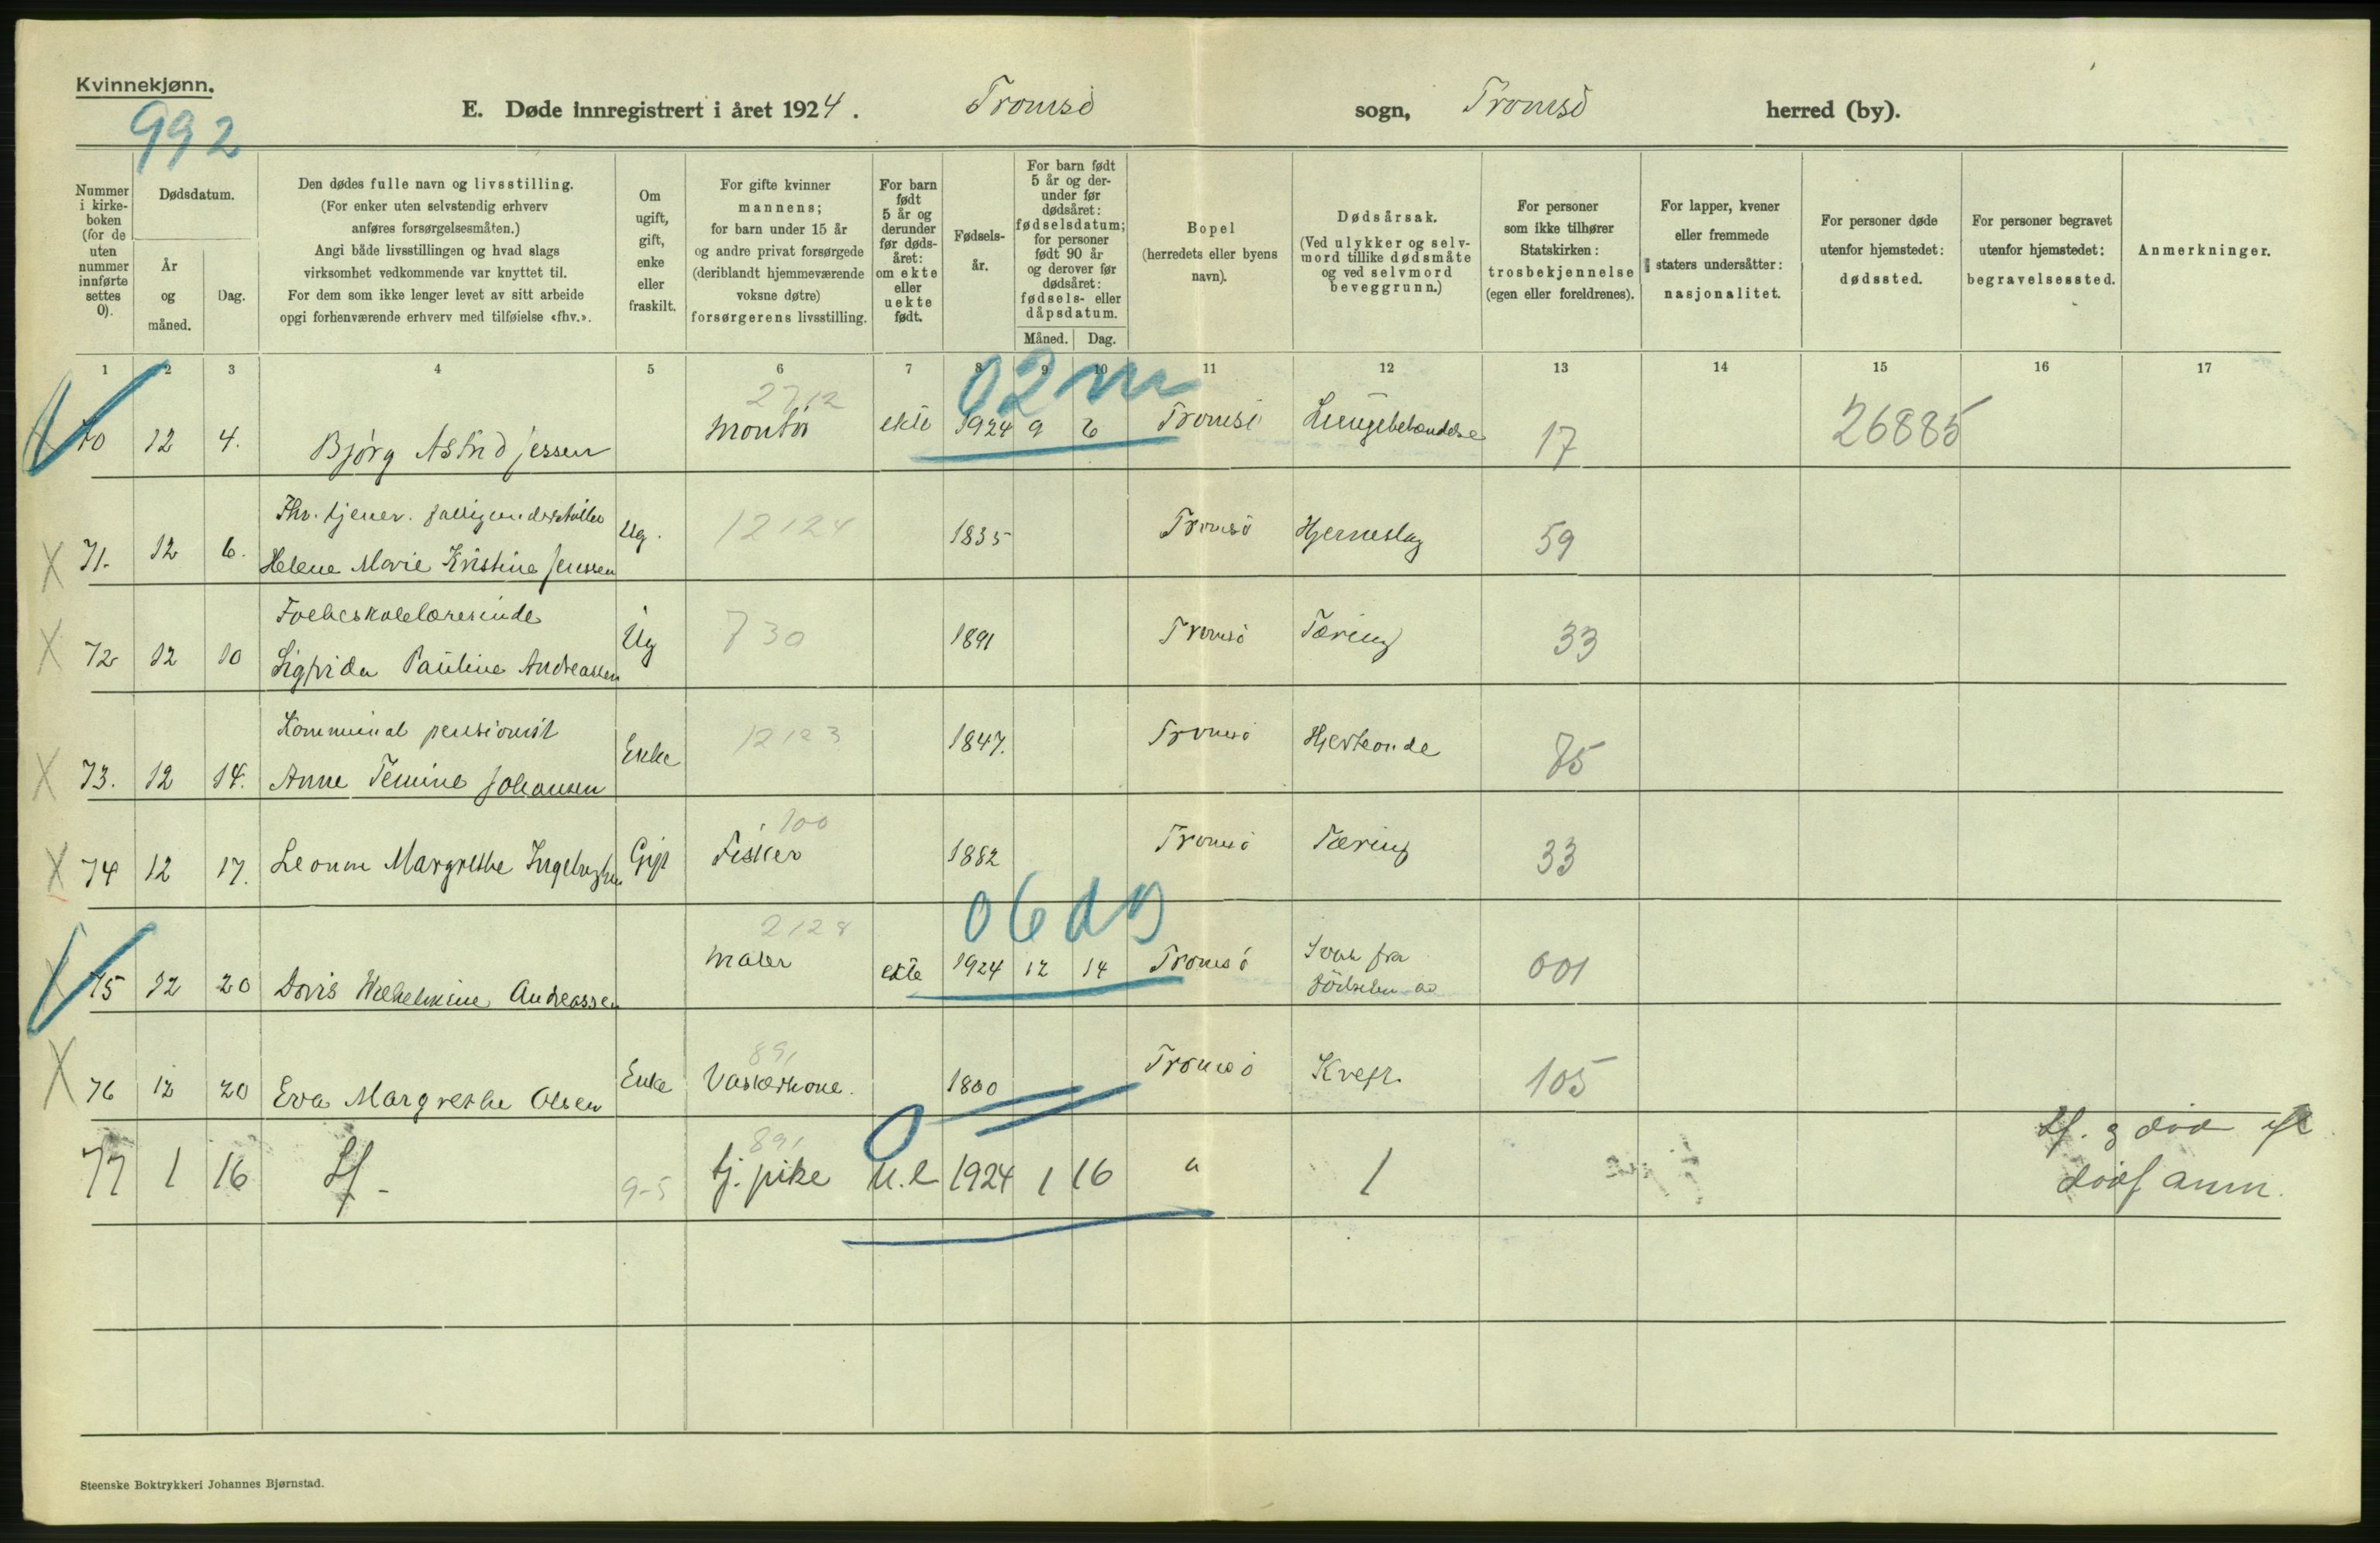 Kvinnekjønn.
992
E. Døde innregistrert i året 1924. Tromsø sogn, Tromsø herred (by).
Nummer i kirke-boken (for de uten nummer innførte settes 0).
Dødsdatum.
År og måned.
Dag.
Den dødes fulle navn og livsstilling.
(For enker uten selvstendig erhverv
anføres forsørgelsesmåten.)
Angi både livsstillingen og hvad slags
virksomhet vedkommende var knyttet til.
For dem som ikke lenger levet av sitt arbeide
opgi forhenværende erhverv med tilføielse «fhv.».
Om ugift, gift, enke eller fraskilt.
For gifte kvinner
mannens;
for barn under 15 år
og andre privat forsørgede
(deriblandt hjemmeværende
voksne døtre)
forsørgerens livsstilling.
For barn født 5 år og derunder før døds-året: om ekte eller uekte født.
Fødsels-år.
For barn født
5 år og der-
under før
dødsåret:
fødselsdatum;
for personer
født 90 år
og derover før
dødsåret:
fødsels- eller
dåpsdatum.
Måned. Dag.
Bopel
(herredets eller byens
navn).
Dødsårsak.
(Ved ulykker og selv-
mord tillike dødsmåte
og ved selvmord
beveggrunn.)
For personer
som ikke tilhører
Statskirken:
trosbekjennelse
(egen eller foreldrenes).
For lapper, kvener
eller fremmede
staters undersåtter:
nasjonalitet.
For personer døde
utenfor hjemstedet:
dødssted.
For personer begravet
utenfor hjemstedet:
begravelsessted.
Anmerkninger.
1 2 3 4 5 6 7 8 9 10 11 12 13 14 15 16 17
2712 02 m
70 12 4. Bjørg Astrid Jessen Montør ekte 1924 9 6 Tromsø Lungebetændelse 17 26885
Fhv. tjener. fattigunderstøttet
71. 12 6. Helene Marie Kristine Jenssen Ug. 12124 1835 Tromsø Hjerneslag 59
Folkeskolelærerinde
72 12 10 Sigfrida Pauline Andreassen Ug 730 1891 Tromsø Tæring 33
Kommunal pensionist
73. 12 14. Anne Johansen Enke 12123 1847. Tromsø Hjerteonde 75
100
74 12 17. Margrethe Gift Fisker 1882 Tromsø Tæring 33
2128 06
75 12 20 Doris Andreassen Maler ekte 1924 12 14 Tromsø Svak fra
fødselen av 001
891
76 12 20 Eva Margrethe Olsen Enke Vaskerkone. 1860 Tromsø Kreft. 105
891 0
77 1 16 9-5 tj. pike u.e 1924 1 16 " 1
anm.
Steenske Boktrykkeri Johannes Bjørnstad.